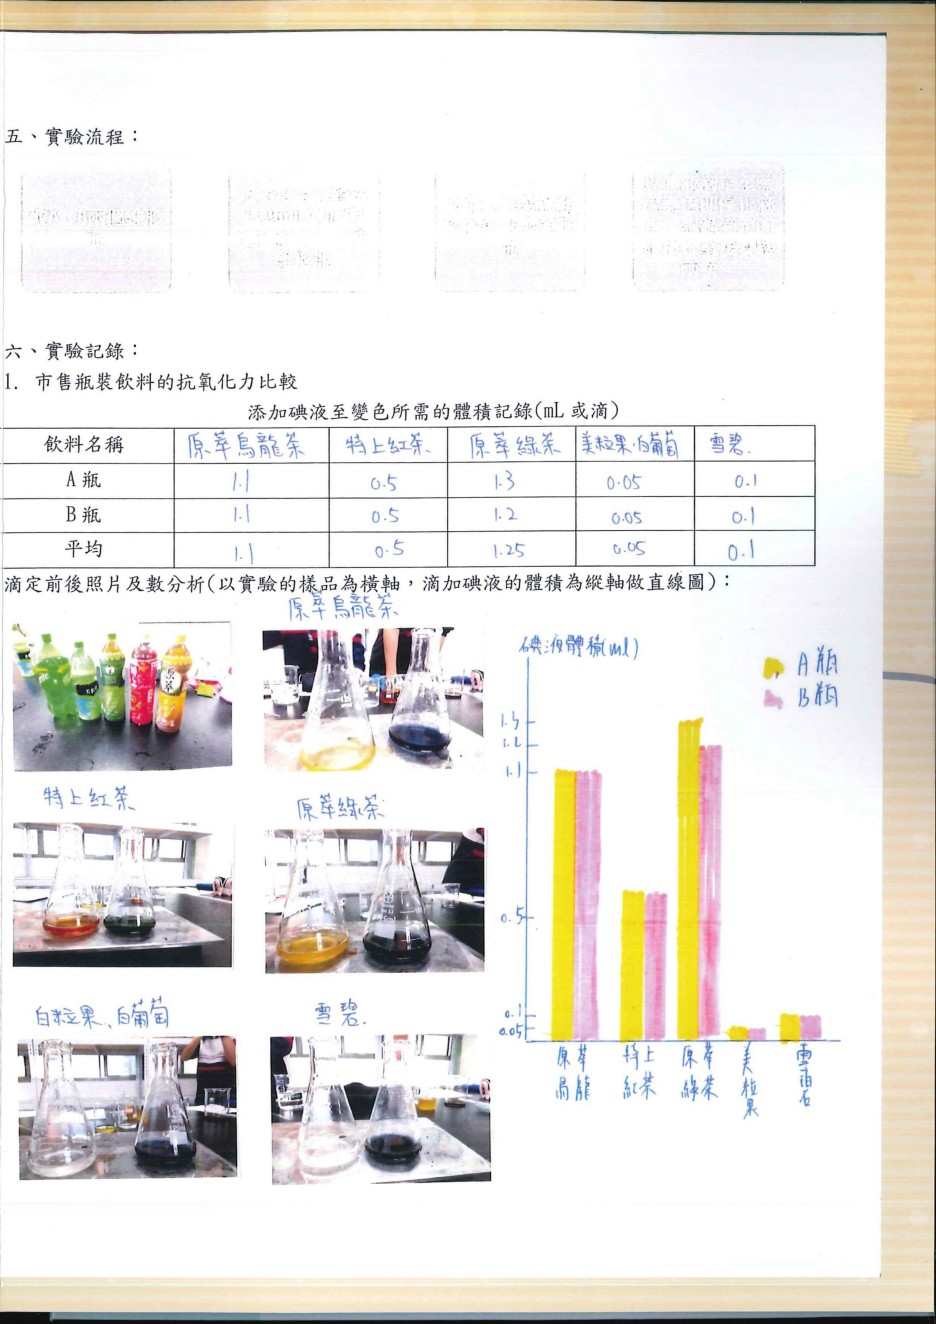 五、實驗流程：
六、實驗記錄：
1. 市售瓶裝飲料的抗氧化力比較
添加碘液至變色所需的體積記錄(mL 或滴)
飲料名稱 原萃烏龍茶 特上紅茶 原萃綠茶 美粒果.白葡萄 雪碧.
A 瓶 1.1 0.5 1.3 0.05 0.1
B 瓶 1.1 0.5 1.2 0.05 0.1
平均 1.1 0.5 1.25 0.05 0.1
滴定前後照片及數分析(以實驗的樣品為橫軸，滴加碘液的體積為縱軸做直線圖)：
原萃烏龍茶
特上紅茶
原萃綠茶
白粒果、白葡萄
雪碧.
碘液體積(ml)
A瓶
B瓶
1.3
1.2
1.1
0.5
0.1
0.05
原萃烏龍
特上紅茶
原萃綠茶
美粒果